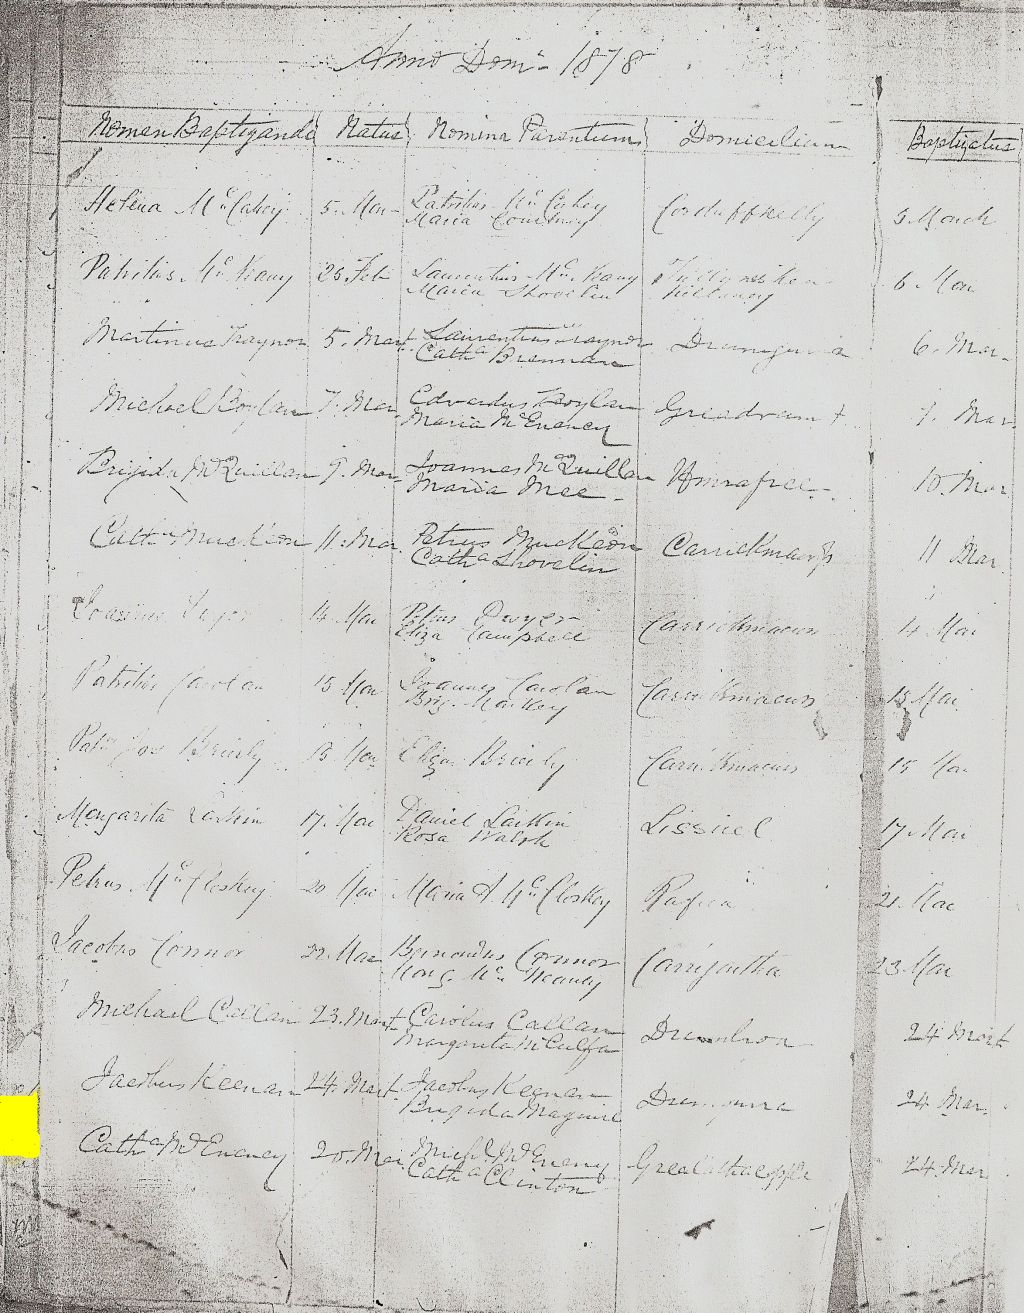 Anno Dom- 1878
Nomen Baptizandi Natus Nomina Parentum Domicilium Baptizatus
Helena McCabey 5. Mar- Patritius McCabey Corduffkelly 5 March
Maria Courtney
Patritius McKeany 26. Feb Laurentius McKeany 6 Mar
Maria Shovelin Killanny
Martinus Traynor 5. Mart Laurentius Traynor Drumgurra 6. Mar-
Catha Brennan
Michael Boylan 7. Mar Edvardus Boylan 7. Mar
Maria McEneney
Brigida McQuillan 9. Mar Joannes McQuillan 10. Mar
Maria Mee
Catha MucKeon 11. Mar Petrus MucKeon Carrickmacross 11 Mar
Catha Shovelin
14 Mar Petrus Dwyer Carrickmacross 14 Mar
Eliza Campbell
Patritius Carolan 15 Mar Joannes Carolan Carrickmacross 15 Mar
Brig. Markey
Patk Jos Brierly 15 Mar Eliza Brierly Carrickmacross 15 Mar
Margarita Larkin 17. Mar Daniel Larkin Lissirel 17 Mar
Rosa Walsh
Petrus McCloskey 20 Mar Maria A McCloskey 21. Mar
Jacobus Connor 22. Mar Connor 23 Mar
Michael Callan 23. Mart Carolus Callan 24 Mart
Margarita
Jacobus Keenan 24. Mart Jacobus Keenan Drumgurra 24 Mar.
Brigida Maguire
Catha McEneney 20. Mar Michl McEneney 24. Mar
Catha Clinton